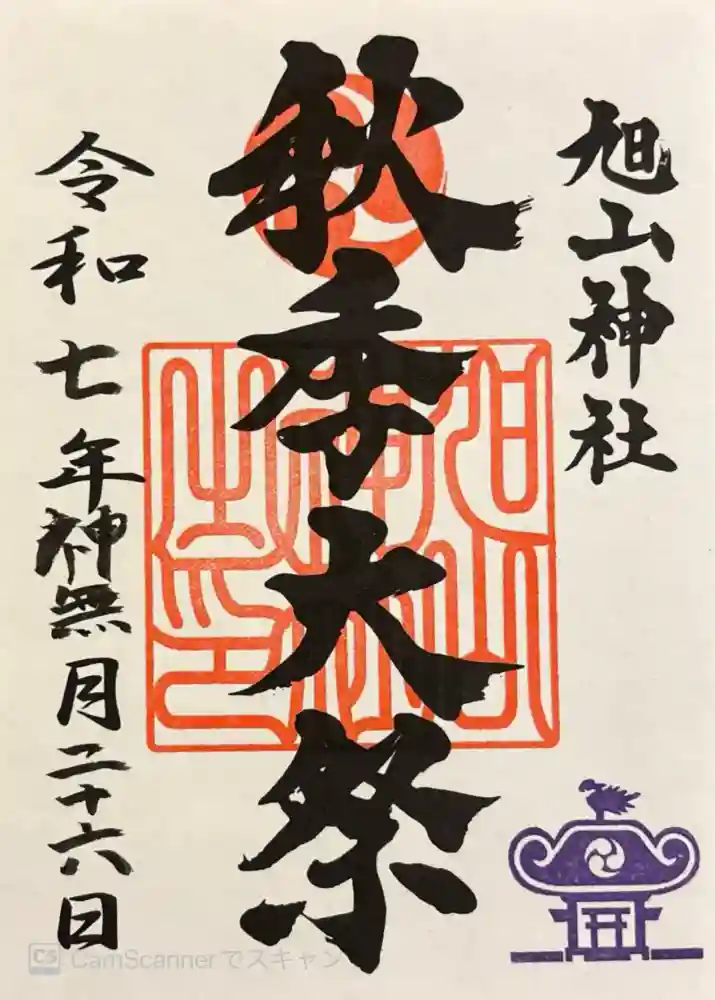 旭山神社
秋季大祭
令和七年神無月二十六日
旭山神社之印
CS CamScannerでスキャン